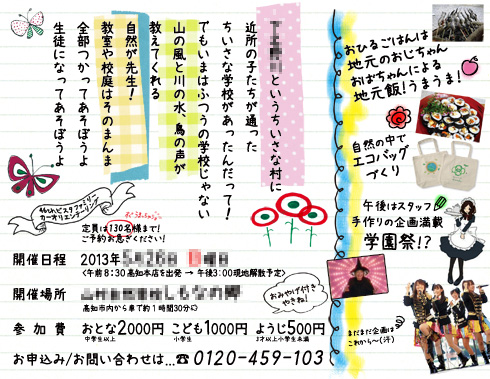 というちいさな村に
近所の子たちが通った
ちいさな学校があったんだって!
でもいまはふつうの学校じゃない
山の風と川の水、鳥の声が
教えてくれる
自然が先生!
教室や校庭はそのまんま
全部つかってあそぼうよ
生徒になってあそぼうよ
おひるごはんは
地元のおじちゃん
おばちゃんによる
地元飯!うまうま!
自然の中で
エコバッグ
づくり
午後はスタッフ
手作りの企画満載
学園祭!?
まだまだ企画は
これから〜(汗)
46thビスタファミリー
カーオリエンテーリング
定員は130名様まで!
ご予約お急ぎください!
開催日程 2013年5月26日 曜日
<午前8:30高知本店を出発 → 午後3:00現地解散予定>
開催場所
高知市内から車で約1時間30分に
おみやげ付き
やきね!
参加費 おとな2000円 こども1000円 ようじ500円
中学生以上 小学生 3才以上小学生未満
お申込み/お問い合わせは…☎0120-459-103